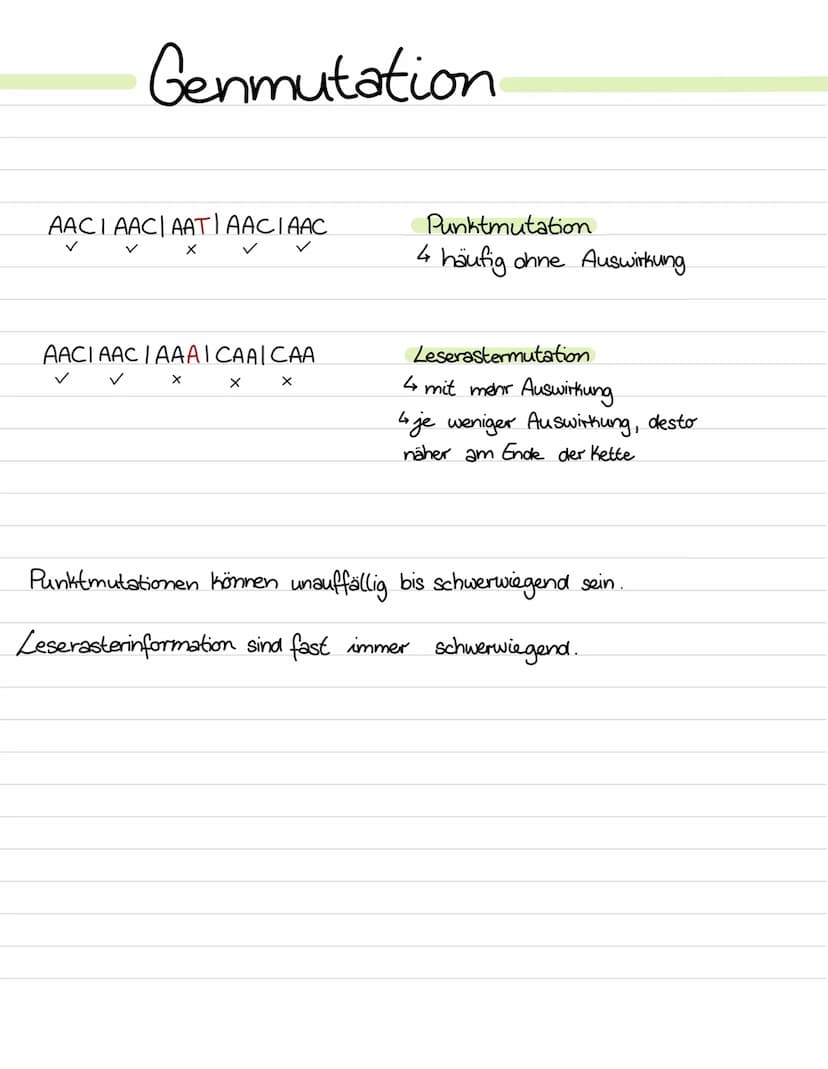 Genmutation
AAC | AAC | AAT | AAC | AAC
Punktmutation
✓ ✓ x ✓ ✓
↳ häufig ohne Auswirkung
AAC | AAC | AAA | CAA | CAA
Leserastermutation
✓ ✓ x x x
↳ mit mehr Auswirkung
↳ je weniger Auswirkung, desto
näher am Ende der Kette
Punktmutationen können unauffällig bis schwerwiegend sein.
Leserasterinformation sind fast immer schwerwiegend.